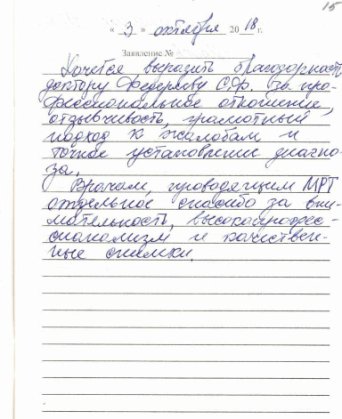 15
« 3 » октября 20 18 г.
Заявление №
Хочется выразить благодарность
доктору Федерякову С.Ф. за про-
фессиональное отношение,
отзывчивость, грамотный
подход к жалобам и
точное установление диагно-
за.
Врачам, проводящим МРТ
отдельное спасибо за вни-
мательность, высокопрофес-
сионализм и качествен-
ные снимки.